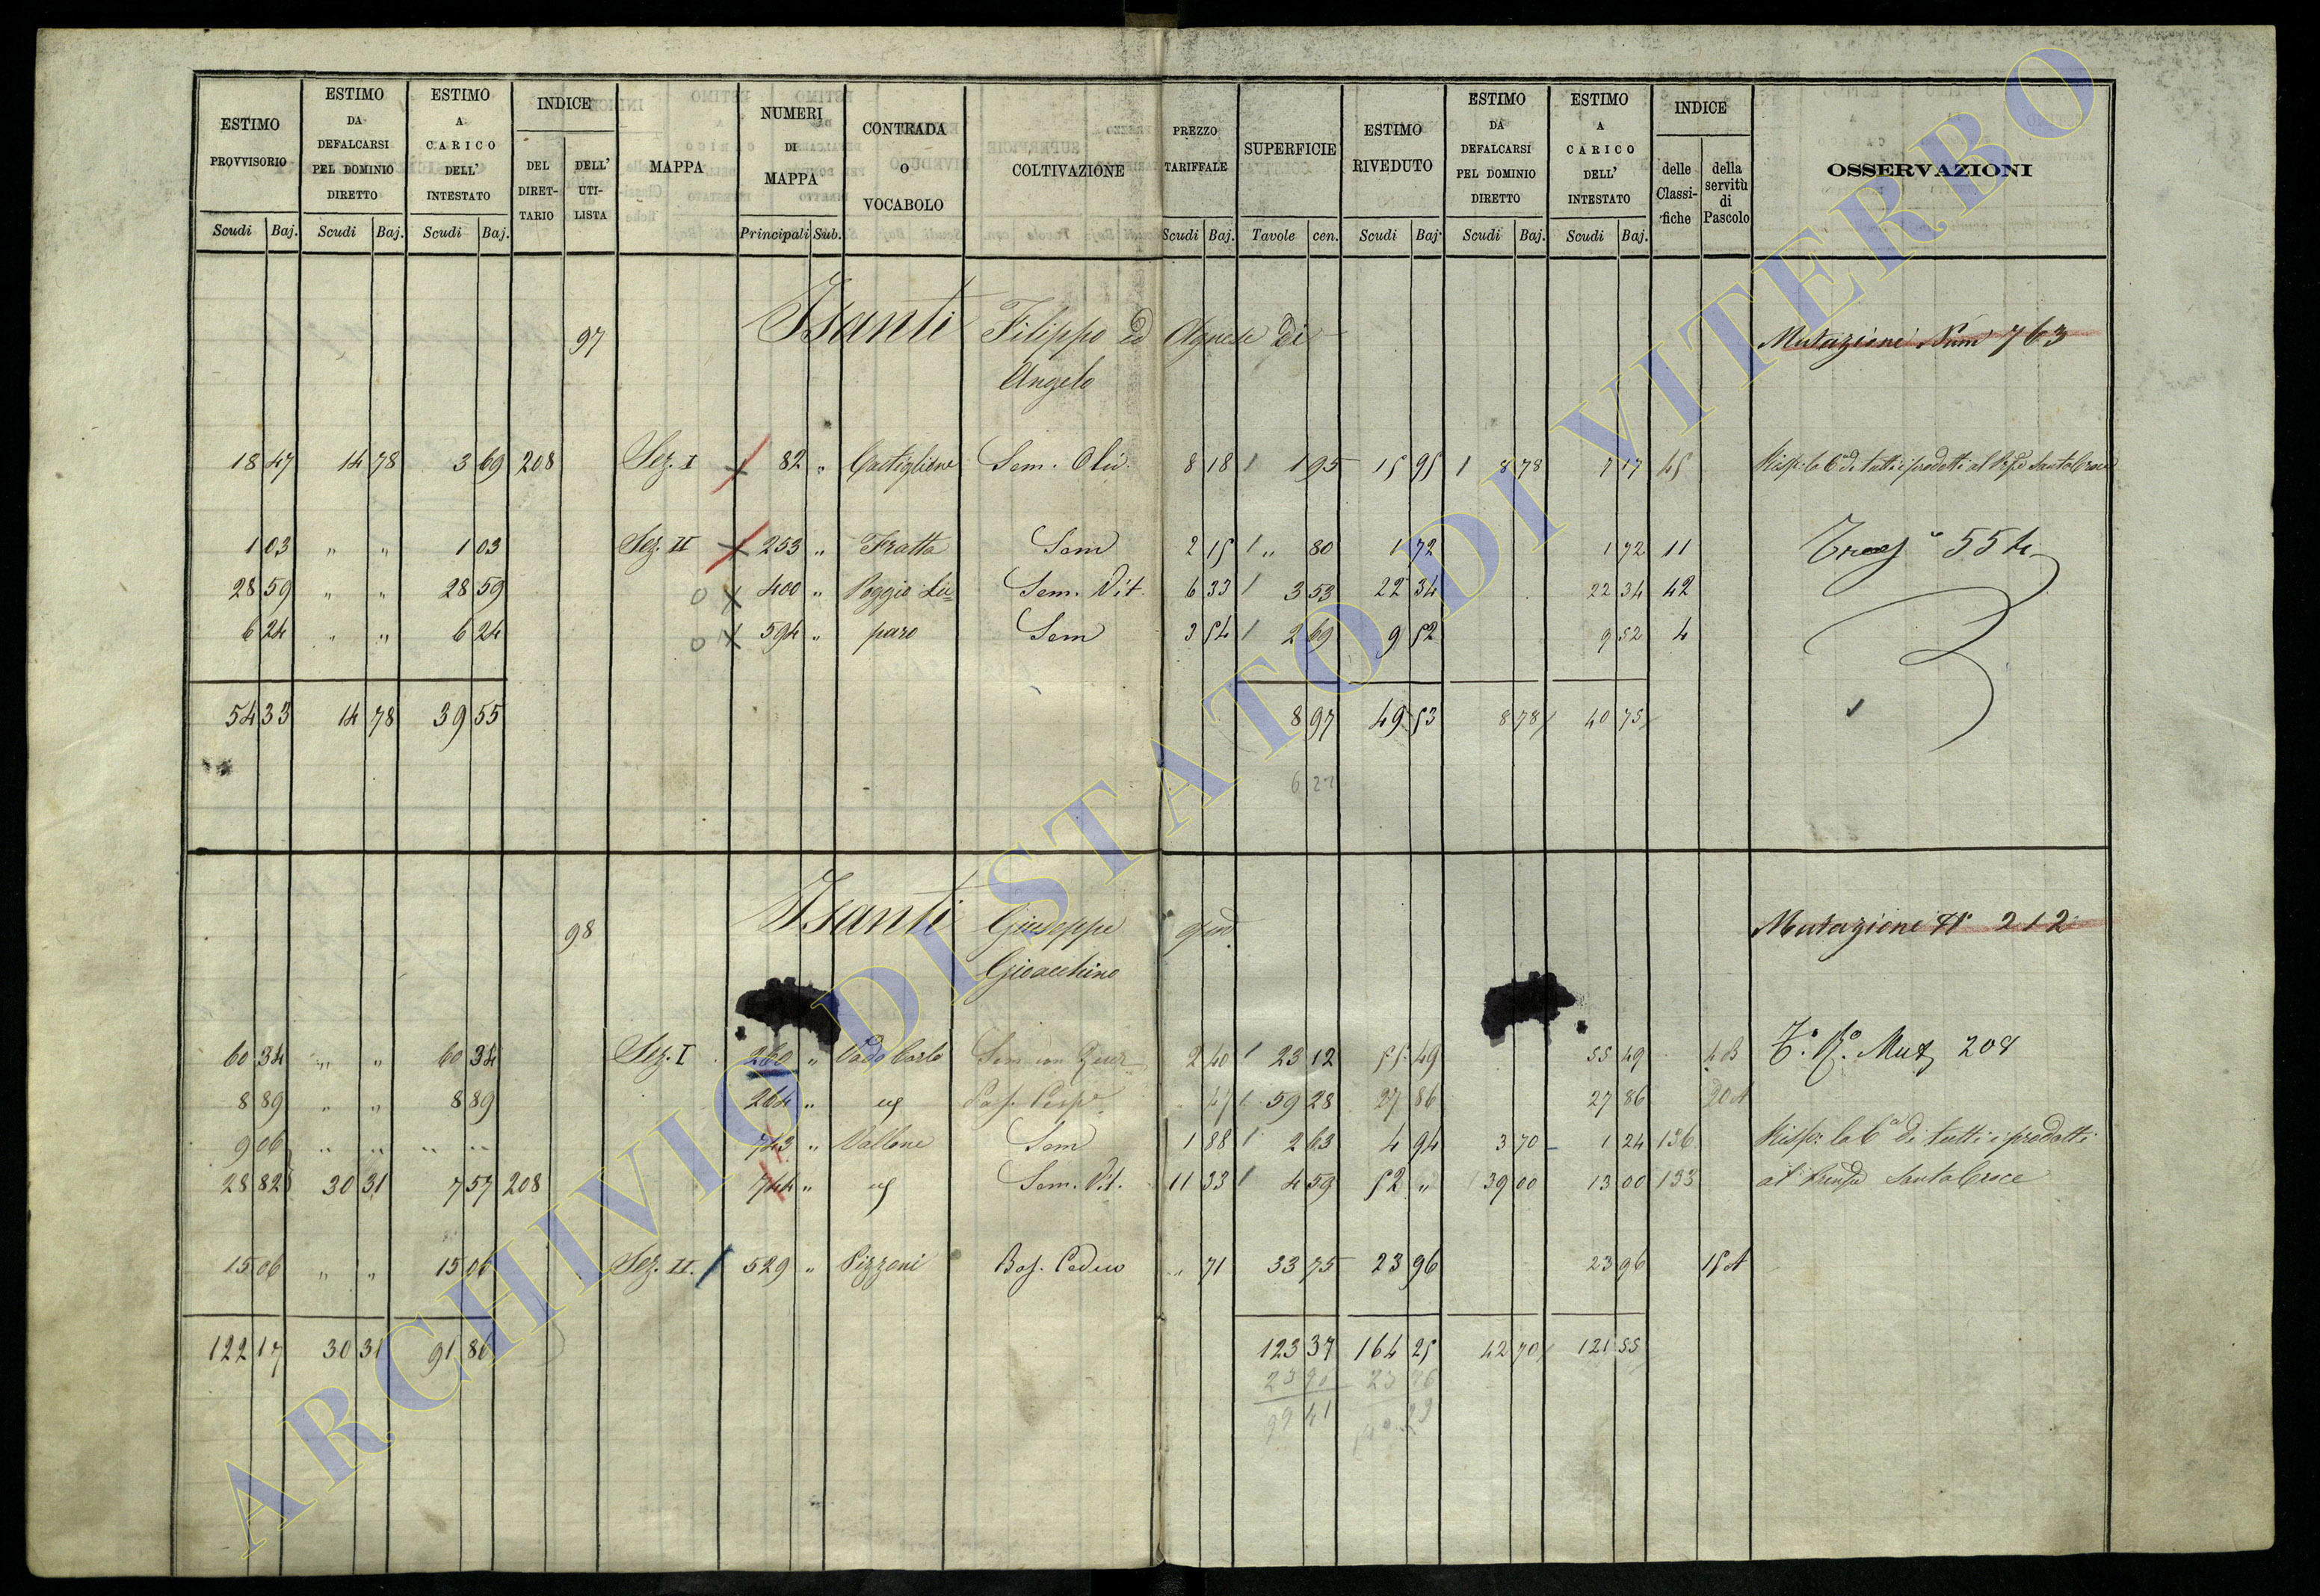 ESTIMO PROVVISORIO
ESTIMO DA DEFALCARSI PEL DOMINIO DIRETTO
ESTIMO A CARICO DELL' INTESTATO
INDICE
DEL DIRET- TARIO
DELL' UTI- LISTA
MAPPA
NUMERI DI MAPPA
CONTRADA O VOCABOLO
COLTIVAZIONE
PREZZO TARIFFALE
SUPERFICIE
ESTIMO RIVEDUTO
ESTIMO DA DEFALCARSI PEL DOMINIO DIRETTO
ESTIMO A CARICO DELL' INTESTATO
INDICE
delle Classi- fiche
della servitù di Pascolo
OSSERVAZIONI
Scudi Baj. Scudi Baj. Scudi Baj. Principali Sub. Scudi Baj. Tavole cen. Scudi Baj. Scudi Baj. Scudi Baj.
97 Isanti Filippo ed Agnese di Mutazione Num 763
Angelo
18 47 14 78 3 69 208 Sez. I 82 " Castiglione Sem. Oliv. 8 18 1 95 15 95 8 78 7 17 45 Risp: la 6a di tutti i prodotti al SantaCroce
1 03 " " 1 03 Sez. II 253 " Fratta Sem 2 15 " 80 1 72 1 72 11 554
28 59 " " 28 59 400 " Poggio Lu= Sem. Vit. 6 33 3 53 22 34 22 34 42
6 24 " " 6 24 594 " paro Sem 3 54 2 69 9 52 9 52 4
54 33 14 78 39 55 8 97 49 53 8 78 40 75
6 27
98 Isanti Giuseppe qm Mutazione N° 212
Gioacchino
60 34 " " 60 34 Sez. I 260 " Vado Carlo Sem con Quer 2 40 23 12 55 49 55 49 4 B T.° R.° Mut 208
8 89 " " 8 89 264 " 47 59 28 27 86 27 86 20 A
9 06 " " " " 743 " Vallone Sem 1 88 2 63 4 94 3 70 1 24 136 Risp: la 6a di tutti i prodotti
28 82 30 31 7 57 208 744 " Sem. Vit. 11 33 4 59 52 " 39 00 13 00 133 al SantaCroce
15 06 " " 15 06 Sez. II. 529 " Pizzoni Bos. Ceduo " 71 33 75 23 96 23 96 15 A
122 17 30 31 91 86 123 37 164 25 42 70 121 55
99 41
ARCHIVIO DI STATO DI VITERBO